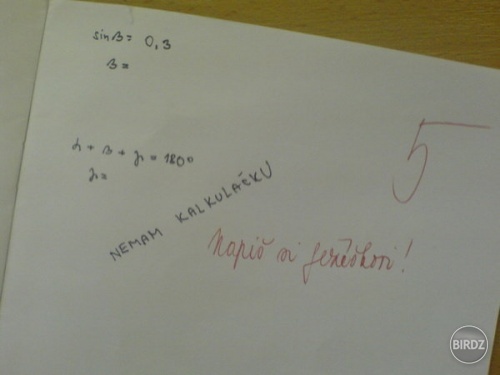 sin β = 0,3
β =
α + β + γ = 180°
γ =
NEMAM KALKULAČKU
5
Napiš si Ježíškovi!
BIRDZ